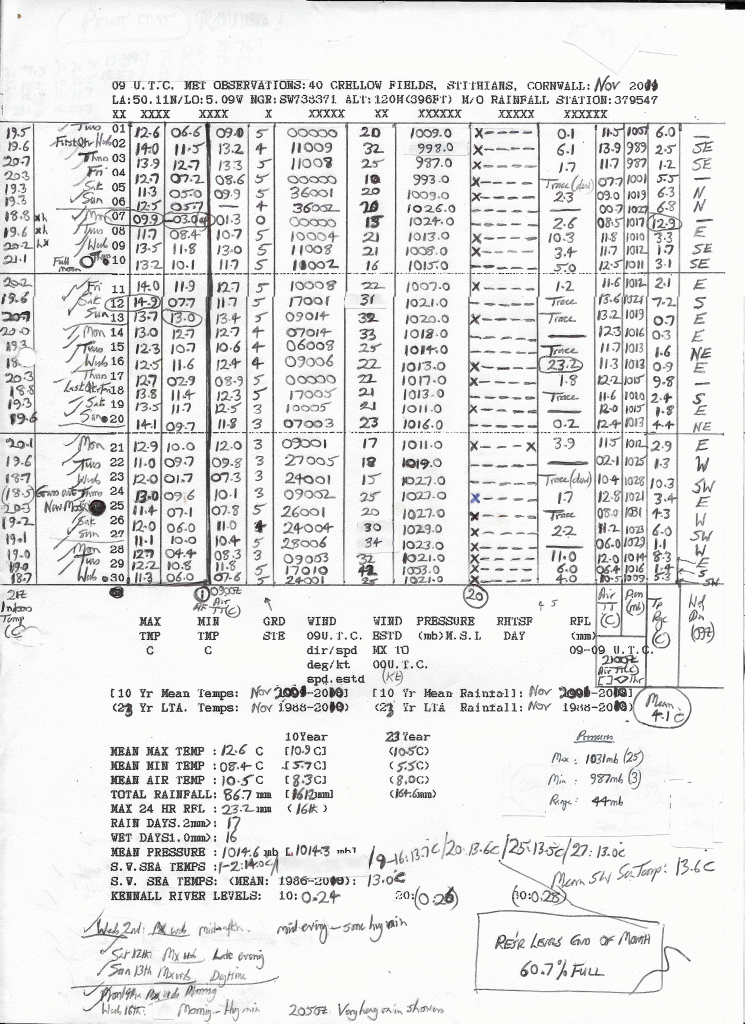 09 U.T.C. MET OBSERVATIONS: 40 CRELLOW FIELDS, STITHIANS, CORNWALL: Nov 2011
LA:50.11N/LO:5.09W NGR:SW738371 ALT:120M(396FT) M/O RAINFALL STATION:379547
XX XXXXX XXXX X XXXXX XX XXXXX XXXXX
19.5 Tues 01 12.6 06.6 09.0 5 00000 20 1009.0 X---- 0.1 11.5 1007 6.0 —
19.6 02 14.0 11.5 13.2 4 11009 32 998.0 X---- 6.1 13.9 989 2.5 SE
20.7 Thu 03 13.9 12.7 13.3 5 11008 25 987.0 X---- 1.7 11.7 987 1.2 SE
20.3 Fri 04 12.7 07.2 08.6 5 00000 993.0 X---- Trace (dew) 07.7 1001 5.5 —
19.3 Sat 05 11.3 05.0 09.5 5 36001 20 1009.0 X---- 2.3 09.0 1019 6.3 N
19.3 Sun 06 12.5 05.7 — 4 36002 1026.0 — 00.7 1027 6.8 N
18.8 Mon 07 09.9 -03.0 01.3 0 00000 1024.0 2.6 08.5 1017 12.9 —
19.6 Tues 08 11.7 08.4 10.7 5 10004 21 1013.0 X---- 10.3 11.8 1010 3.3 E
20.2 Wed 09 13.5 11.8 13.0 5 11008 21 1008.0 X---- 3.4 11.7 1012 1.7 SE
21.1 Full Moon 10 13.2 10.1 11.7 5 11002 16 1015.0 5.0 12.5 1011 3.1 SE
20.2 Fri 11 14.0 11.9 12.7 5 10008 22 1007.0 X---- 1.2 11.6 1012 2.1 E
19.6 Sat 12 14.9 07.7 11.7 5 17001 31 1021.0 Trace 13.6 1021 7.2 S
20.7 Sun 13 13.7 13.0 13.4 5 09014 32 1020.0 X---- Trace 13.2 1019 0.7 E
20.0 Mon 14 13.0 12.7 12.7 4 07014 33 1018.0 ---- — 12.3 1016 0.3 E
19.3 Tues 15 12.3 10.7 10.6 4 06008 25 1014.0 Trace 11.7 1013 1.6 NE
18. Wed 16 12.5 11.6 12.4 4 09006 22 1013.0 X---- 23.2 11.3 1013 0.9 E
20.3 Thu 17 12.7 02.9 08.9 5 00000 22 1017.0 X---- 1.8 12.2 1015 9.8 —
18.8 Last Qtr Fri 18 13.8 11.4 12.3 5 17005 21 1013.0 Trace 11.6 1010 2.4 S
19.3 Sat 19 13.5 11.7 12.5 3 10005 21 1011.0 X---- — 12.0 1015 1.8 E
19.6 Sun 20 14.1 09.7 11.8 3 07003 23 1016.0 0.2 12.4 1013 4.4 NE
20.1 Mon 21 12.9 10.0 12.0 3 09001 17 1011.0 X---X 3.9 11.5 1012 2.9 E
19.6 Tues 22 11.0 09.7 09.8 3 27005 18 1019.0 — 02.1 1025 1.3 W
18.7 Wed 23 12.0 01.7 07.3 3 24001 15 1027.0 Trace (dew) 10.4 1028 10.3 SW
(18.5) Thu 24 13.0 09.6 10.1 3 09002 25 1027.0 X---- 1.7 12.8 1021 3.4 E
20.3 New Moon 25 11.4 07.1 07.8 5 26001 20 1027.0 Trace 08.0 1031 4.3 W
19.2 Sat 26 12.0 06.0 11.0 4 24004 30 1029.0 X---- 2.2 11.2 1023 6.0 SW
19.1 Sun 27 11.1 10.0 10.4 5 28006 34 1023.0 — 06.0 1029 1.1 W
19.0 Mon 28 12.7 04.4 08.3 3 09003 32 1021.0 X---- 11.0 12.0 1014 8.3 E
19.0 Tues 29 11.2 10.0 11.7 5 17010 42 1003.0 X---- 6.0 06.4 1016 1.4 S
18.7 Wed 30 11.3 06.0 07.6 5 24001 25 1021.0 X---- 4.0 10.5 1009 5.3 SW
21Z Indoor Temp (C)
0900Z Air TT(C)
Air TT (C) Pres (mb) Tp Rge (C) Wd Dn (09Z)
MAX MIN GRD WIND WIND PRESSURE RHTSF RFL
TMP TMP STE 09U.T.C. ESTD (mb)M.S.L DAY (mm)
C C dir/spd MX TO 09-09 U.T.C.
deg/kt 00U.T.C. 2100Z
spd.estd (kt)
[10 Yr Mean Temps: Nov 2001-2010] [10 Yr Mean Rainfall: Nov 2001-2010]
(23 Yr LTA. Temps: Nov 1988-2010) (23 Yr LTA Rainfall: Nov 1988-2010)
Mean 4.1C
10Year 23Year
MEAN MAX TEMP : 12.6 C [10.9C] (10.5C)
MEAN MIN TEMP : 08.4 C [5.7C] (5.5C)
MEAN AIR TEMP : 10.5 C [8.3C] (8.0C)
TOTAL RAINFALL: 86.7 mm [161.2mm] (164.6mm)
MAX 24 HR RFL : 23.2 mm (16th)
RAIN DAYS.2mm): 17
WET DAYS1.0mm): 16
MEAN PRESSURE : 1014.6 mb [1014.3 mb]
Pressure
Max: 1031mb (25)
Min: 987mb (3)
Range: 44mb
S.W.SEA TEMPS :1-2:14.0C/ /9-16:13.7C/20:13.6C/25:13.5C/27:13.0C
S.W. SEA TEMPS: (MEAN: 1986-2010): 13.0C
Mean SW Sea Temp: 13.6C
KENNALL RIVER LEVELS: 10:0.24 20:(0.26) 30:0.28
Wed 2nd: mid evening - some hvy rain
Sat 12th Mx wds Late evening
Sun 13th Mx wds Daytime
Wed 16th: Morning - Hvy rain 2050Z Very heavy rain showers
RES'R LEVELS END OF MONTH
60.7% FULL